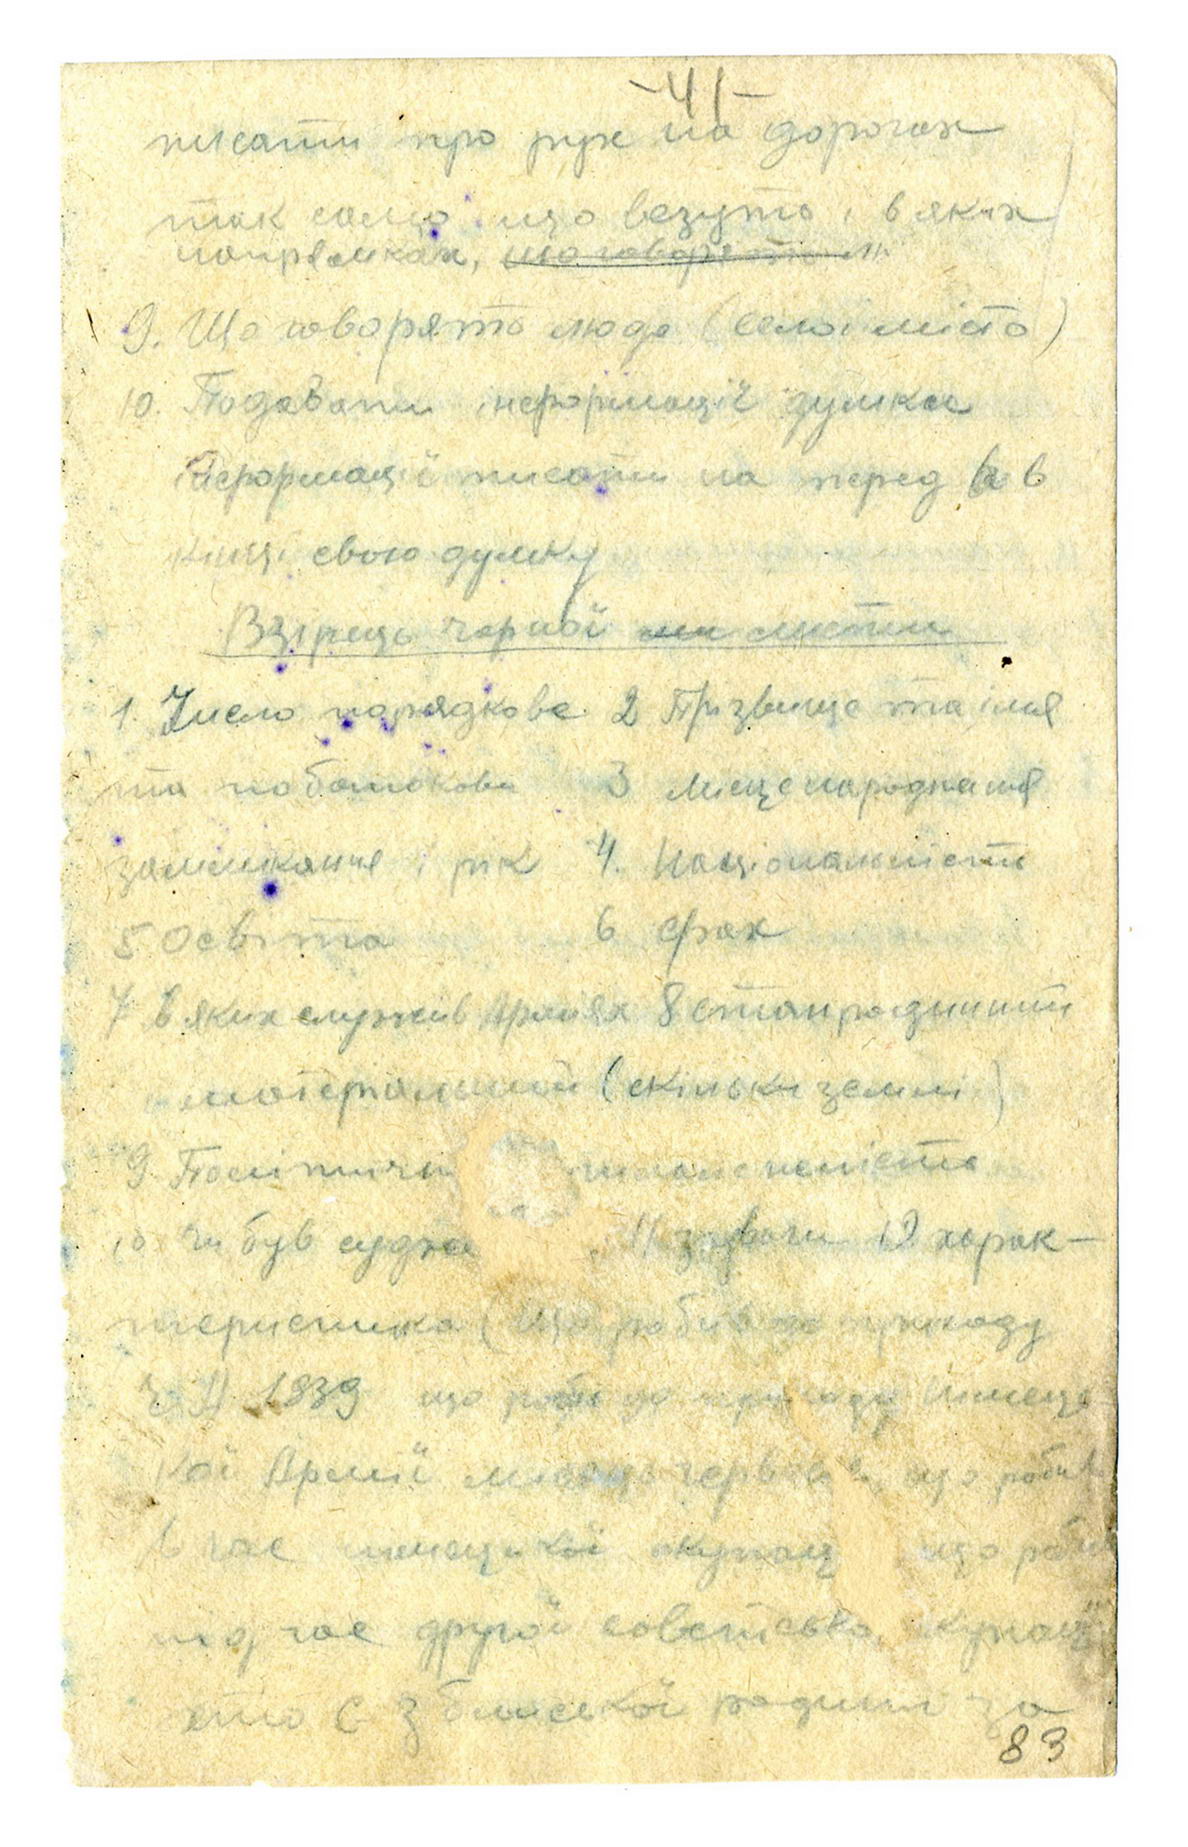 -41-
писати про рух на дорогах
так само що везуть і в яких
напрямках, що говорять
9. Що говорять люде (село і місто)
10. Подавати інформації думкає
Інформації писати на перед а в
кінці свою думку
Взірець чорної листи
1. Число порядкове 2 Прізвище та імя
та по батькови 3 Місце народження
замешкання і рік 4. Національність
5. Освіта 6 Фах
7 В яких служив Арміях 8 стан родинний
матеріальний (скільки землі)
9. Політичн
10. Чи був судже 11 зауваги 12 харак-
теристика (Що робив до приходу
1939 що робив до приходу німець
кої Армії що робив
в час німецької окупац що робив
під час другої совєтської окупації
хто є з близької родини за
83